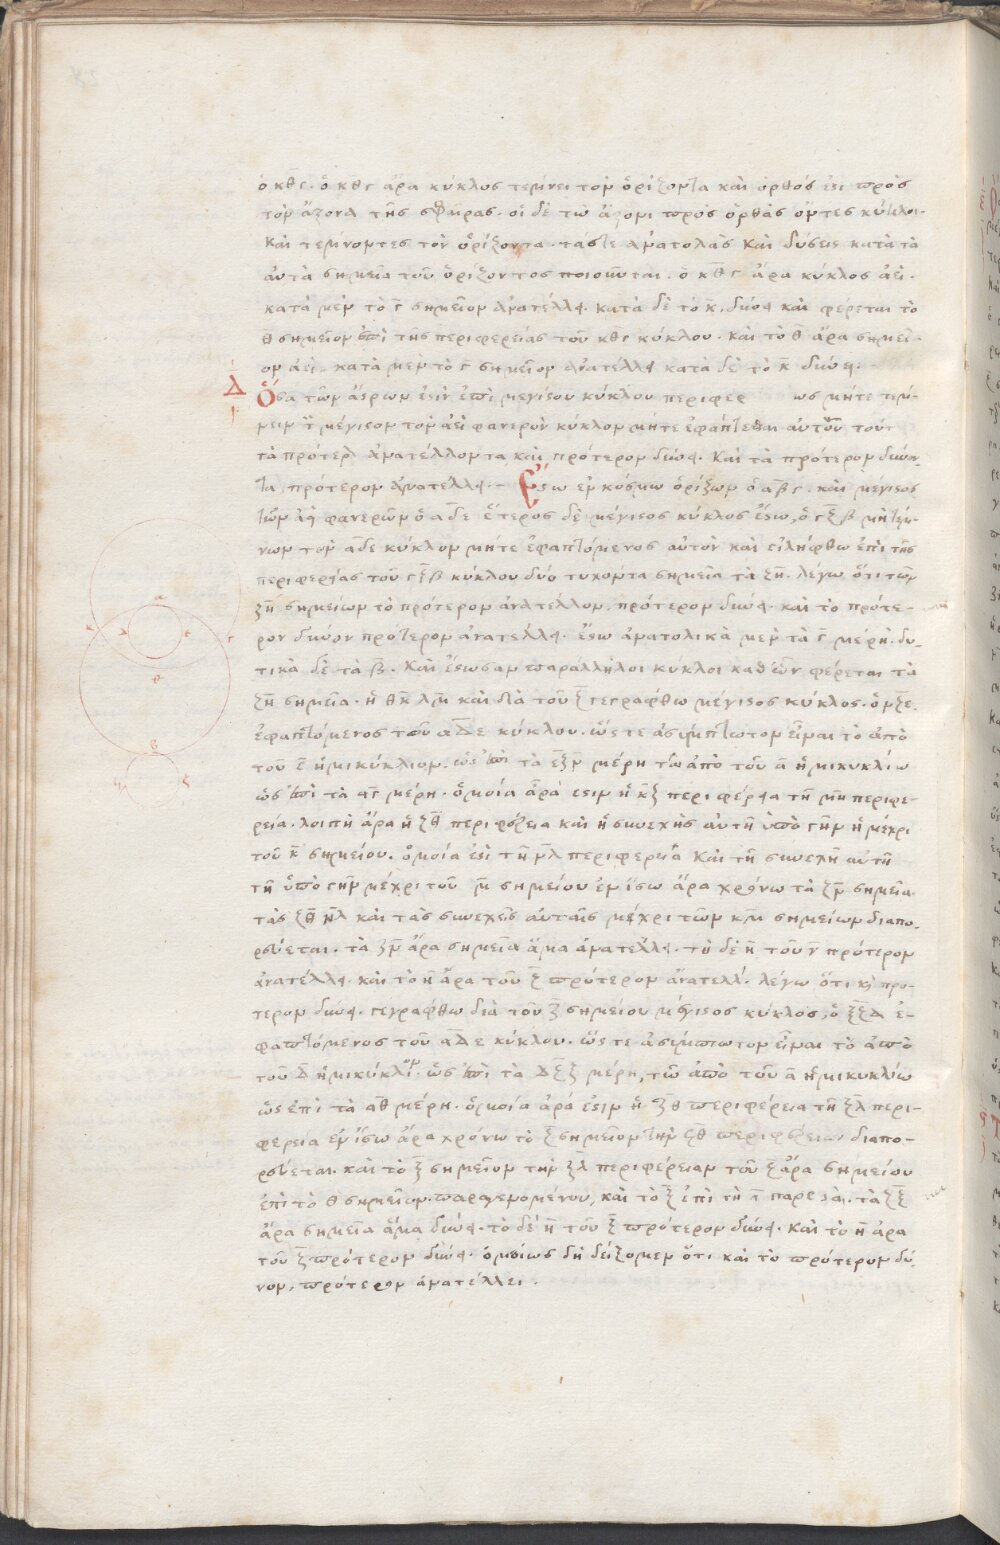 ὁ κθγ. ὁ κθγ ἄρα κύκλος τέμνει τὸν ὁρίζοντα καὶ ὀρθός ἐστι πρὸς
τὸν ἄξονα τῆς σφαίρας. οἱ δὲ τῶ ἄξονι πρὸς ὀρθὰς ὄντες κύκλοι.
καὶ τέμνοντες τὸν ὁρίζοντα. τάς τε ἀνατολὰς καὶ δύσεις κατὰ τὰ
αὐτὰ σημεῖα τοῦ ὁρίζοντος ποιοῦνται. ὁ κθγ ἄρα κύκλος ἀεὶ.
κατὰ μὲν τὸ γ σημεῖον ἀνατέλλει. κατὰ δὲ τὸ κ, δύνει καὶ φέρεται τὸ
θ σημεῖον ἐπὶ τῆς περιφερείας τοῦ κθγ κύκλου. καὶ τὸ θ ἄρα σημεῖ-
ον ἀεὶ. κατὰ μὲν τὸ γ σημεῖον ἀνατέλλει κατὰ δὲ τὸ κ δύνει.
Δ Ὅσα τῶν ἄστρων ἐστὶν ἐπὶ μεγίστου κύκλου περιφερ ως μήτε τέμ-
νειν τ μέγιστον τὸν ἀεὶ φανερὸν κύκλον μήτε ἐφάπτεσθαι αὐτοῦ τού
τὰ πρότερ ἀνατέλλοντα καὶ πρότερον δύνει. καὶ τὰ πρότερον δύνον-
τα, πρότερον ἀνατέλλει. Ἔστω ἐν κόσμω ὁρίζων ὁ αβγ. καὶ μέγιστος
τῶν ἀεὶ φανερῶν ὁ αδε ἕτερος δὲ μέγιστος κύκλος ἔστω, ὁ γζβ μὴ τέμ-
νων τὸν αδε κύκλον μήτε ἐφαπτόμενος αὐτοῦ καὶ εἰλήφθω ἐπὶ τῆς
περιφερείας τοῦ γζβ κύκλου δύο τυχόντα σημεῖα τὰ ζη. λέγω ὅτι τῶν
ζη σημείων τὸ πρότερον ἀνατέλλον, πρότερον δύνει. καὶ τὸ πρότε-
ρον δῦνον πρότερον ἀνατέλλει. ἔστω ἀνατολικὰ μὲν τὰ γ μέρη. δυ-
τικὰ δὲ τὰ β. καὶ ἔστωσαν παράλληλοι κύκλοι καθ' ὧν φέρεται τὰ
ζη σημεῖα. ἡ θκ λμ καὶ διὰ τοῦ ζ γεγράφθω μέγιστος κύκλος. ὁ νζε.
ἐφαπτόμενος τοῦ αδε κύκλου. ὥστε ἀσύμπτωτον εἶναι τὸ ἀπὸ
τοῦ ε ἡμικύκλιον. ὡς ἐπὶ τὰ εζν μέρη τῶ ἀπὸ τοῦ α ἡμικυκλίω
ὡς ἐπὶ τὰ αγ μέρη. ὁμοία ἄρά ἐστιν ἡ κζ περιφέρεια τῆ μν περιφε-
ρεία. λοιπὴ ἄρα ἡ ζθ περιφέρεια καὶ ἡ συνεχὴς αὐτῆ ὑπὸ γῆν ἡ μέχρι
τοῦ κ σημείου. ὁμοία ἐστὶ τῆ νλ περιφερεία καὶ τῆ συνεχῆ αὐτῆ
τῆ ὑπὸ γῆν μέχρι τοῦ μ σημείου ἐν ἴσω ἄρα χρόνω τὰ ζν σημεῖα
τὰς ζθ νλ καὶ τὰς συνεχεῖς αὐταῖς μέχρι τῶν κμ σημείων διαπο-
ρεύεται. τὰ ζν ἄρα σημεῖα ἅμα ἀνατέλλει. τὸ δὲ η τοῦ ν πρότερον
ἀνατέλλει. καὶ τὸ η ἄρα τοῦ ζ πρότερον ἀνατέλλ. λέγω ὅτι κ πρό-
τερον δύνει. γεγράφθω διὰ τοῦ ζ σημείου μέγιστος κύκλος, ὁ ξζδ ἐ-
φαπτόμενος τοῦ αδε κύκλου. ὥστε ἀσύμπτωτον εἶναι τὸ ἀπὸ
τοῦ δ ἡμικύκλιον ὡς ἐπὶ τὰ δζξ μέρη, τῶ ἀπὸ τοῦ α ἡμικυκλίω
ὡς ἐπὶ τὰ αθ μέρη. ὁμοία ἄρά ἐστιν ἡ ζθ περιφέρεια τῆ ξλ περι-
φερεία ἐν ἴσω ἄρα χρόνω τὸ ζ σημεῖον τὴν ζθ περιφέρειαν διαπο-
ρεύεται. καὶ τὸ ξ σημεῖον τὴν ξλ περιφέρειαν τοῦ ζ ἄρα σημείου
ἐπὶ τὸ θ σημεῖον παραγενομένου, καὶ τὸ ξ ἐπὶ τὴ τ παρέσται. τὰ ζξ
ἄρα σημεῖα ἅμα δύνει. τὸ δὲ η τοῦ ξ πρότερον δύνει. καὶ τὸ η ἄρα
τοῦ ζ πρότερον δύνει. ὁμοίως δὴ δείξομεν ὅτι καὶ τὸ πρότερον δῦ-
νον, πρότερον ἀνατέλλει.